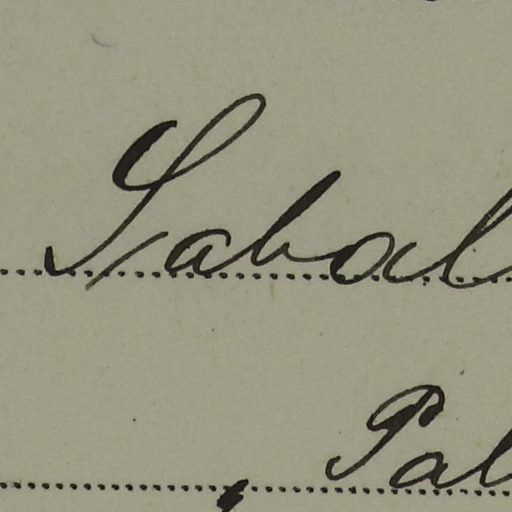 Sabal
Pal